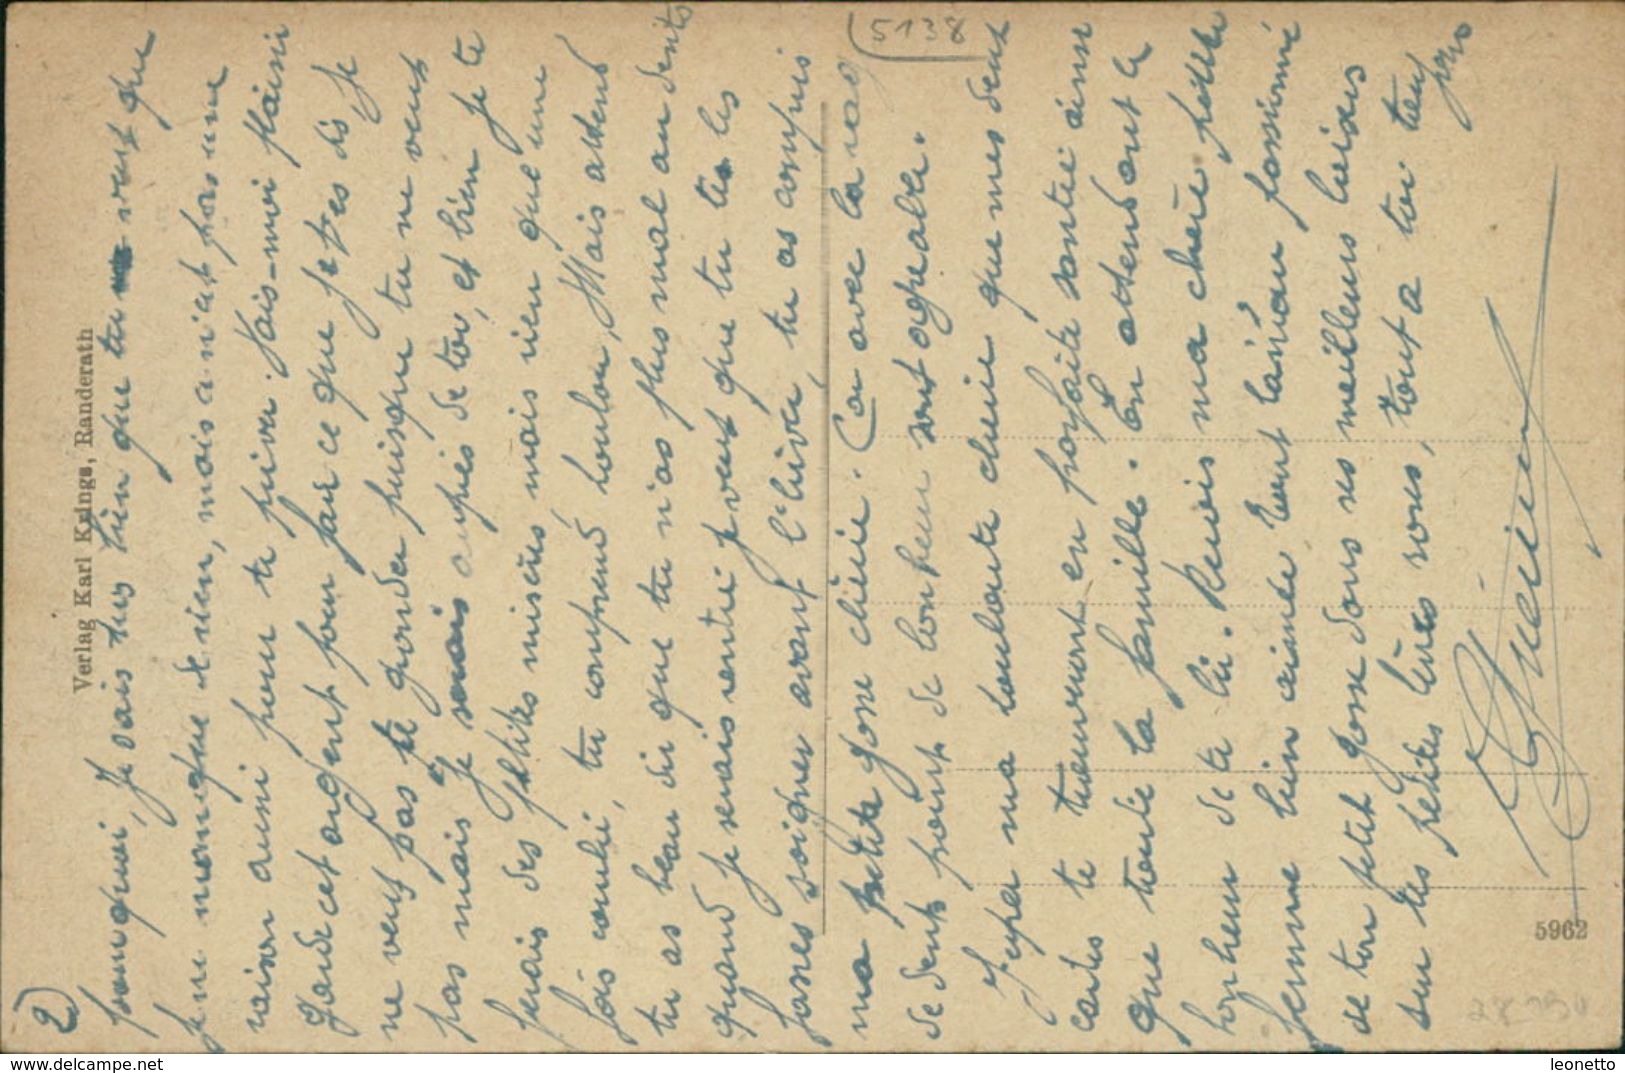 2)
pourquoi, je sais très bien que tu veux que
je ne manque de rien, mais ce n'est pas une
raison aussi pour te priver. Fais-moi plaisir
garde cet argent pour faire ce que je te dis, je
ne veux pas te gronder puisque tu ne veux
pas mais si je serais auprès de toi, et bien je te
ferais des petites misères mais rien que une
fois couché, tu comprend loulou, Mais attend
tu as beau dire que tu n'as plus mal au dents
quand je serais rentré je veux que tu te les
fasses soigner avant l'hiver, tu as compris
ma petite gosse chérie. Car avec la rage
de dents point de bonheur sont agréable.
J'espère ma louloute chérie que mes deux
cartes te trouveront en parfaite santé ainsi
que toute la famille. En attendant le
bonheur de te lire. Reçois ma chère petite
femme bien aimée tout
de ton petit gosse dans ses meilleurs baisers
sur tes petites lèvres roses, tout à toi ton gros
5138
Verlag Karl Krings, Randerath
5962
delcampe.net
leonetto